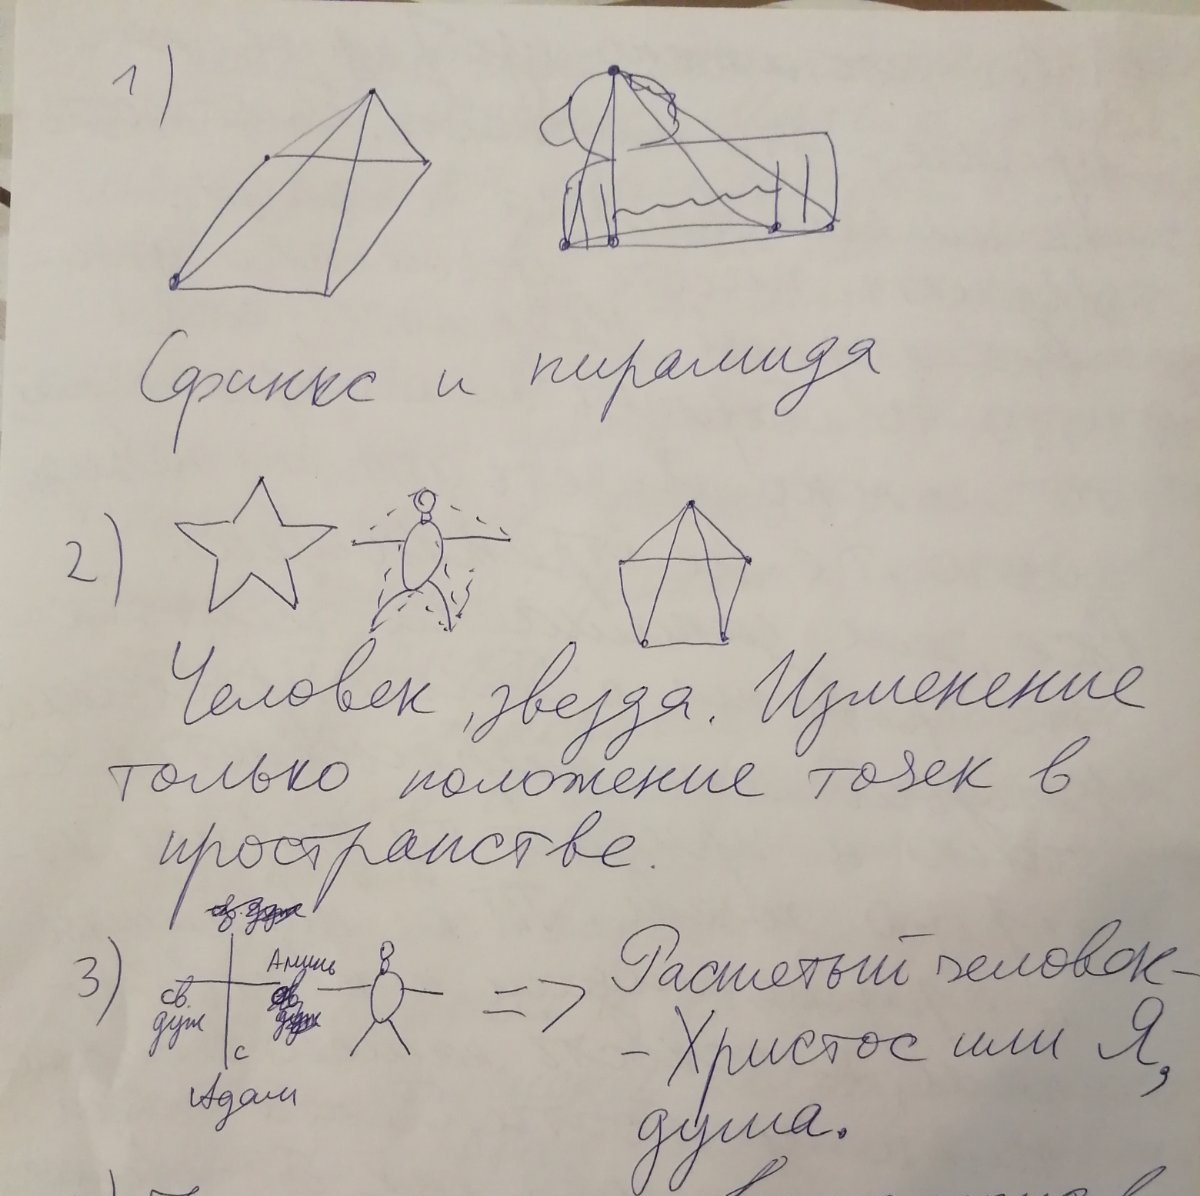 1)
Сфинкс и пирамида
2)
Человек, звезда. Изменение
только положение точек в
пространстве.
3)
Аминь
св.
дух
с
Адам
=> Распетый человек -
- Христос или Я,
душа.